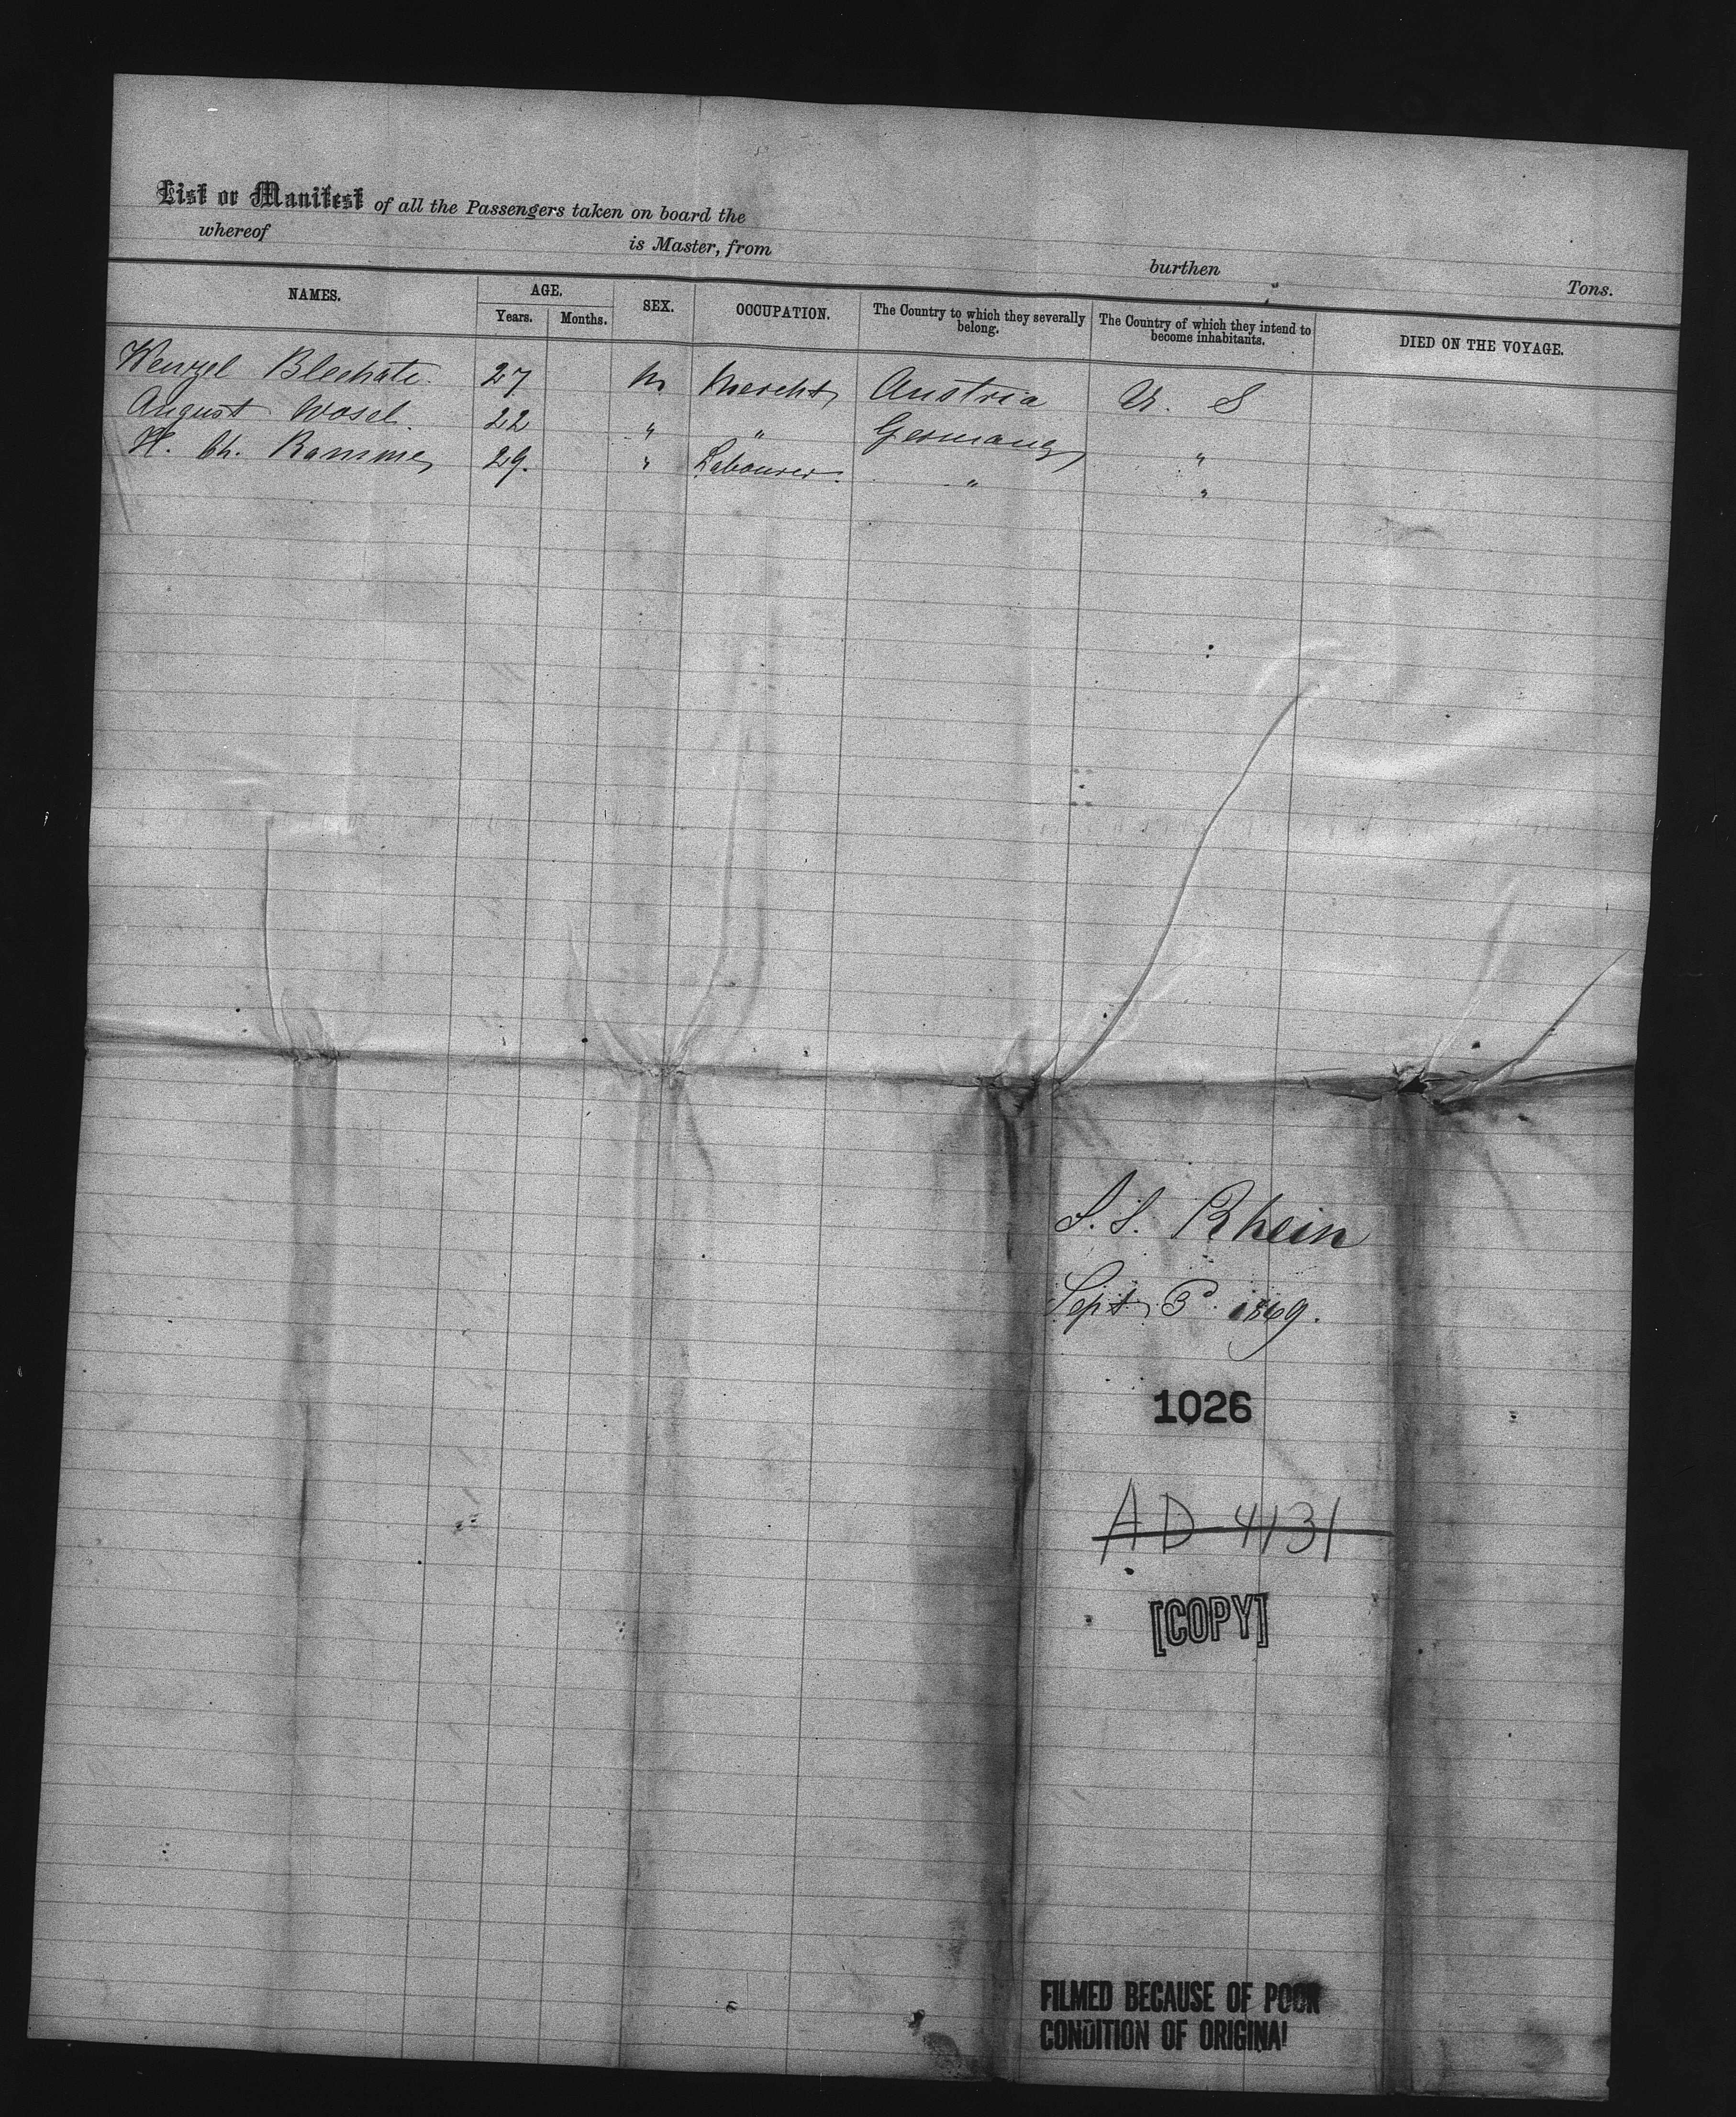 List or Manifest of all the Passengers taken on board the burthen Tons.
whereof is Master, from
NAMES. AGE. SEX. OCCUPATION. The Country to which they severally belong. The Country of which they intend to become inhabitants. DIED ON THE VOYAGE.
Years. Months.
Wenzel Blechate. 27 M Mercht, Austria U. S
August Wosel. 22 " " Germany "
H. Ch. Ramme, 29. " Labourer. " "
S. S. Rhein
Sept, 3d. 1869.
1026
AD-4131
[COPY]
FILMED BECAUSE OF POOR
CONDITION OF ORIGINAL